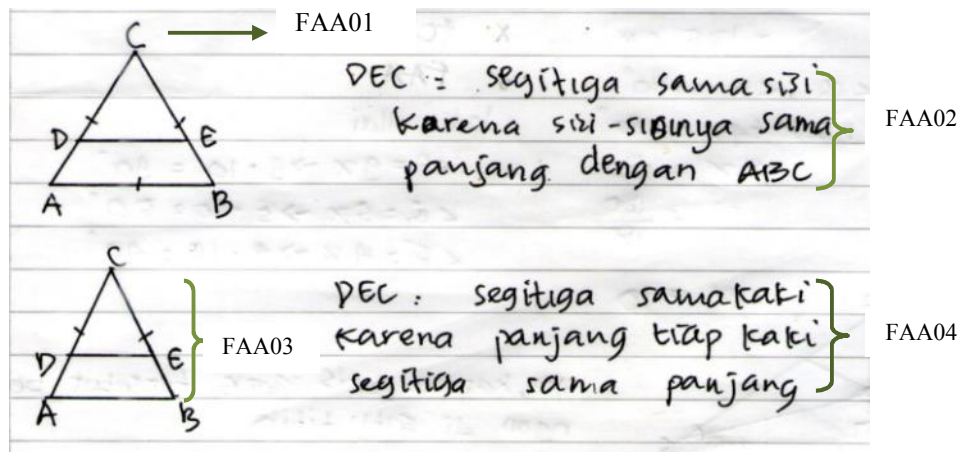 C FAA01
DEC = segitiga sama sisi
karena sisi-sisinya sama
panjang dengan ABC
FAA02
D E
A B
C
DEC : segitiga samakaki
karena panjang tiap kaki
segitiga sama panjang
FAA03
FAA04
D E
A B